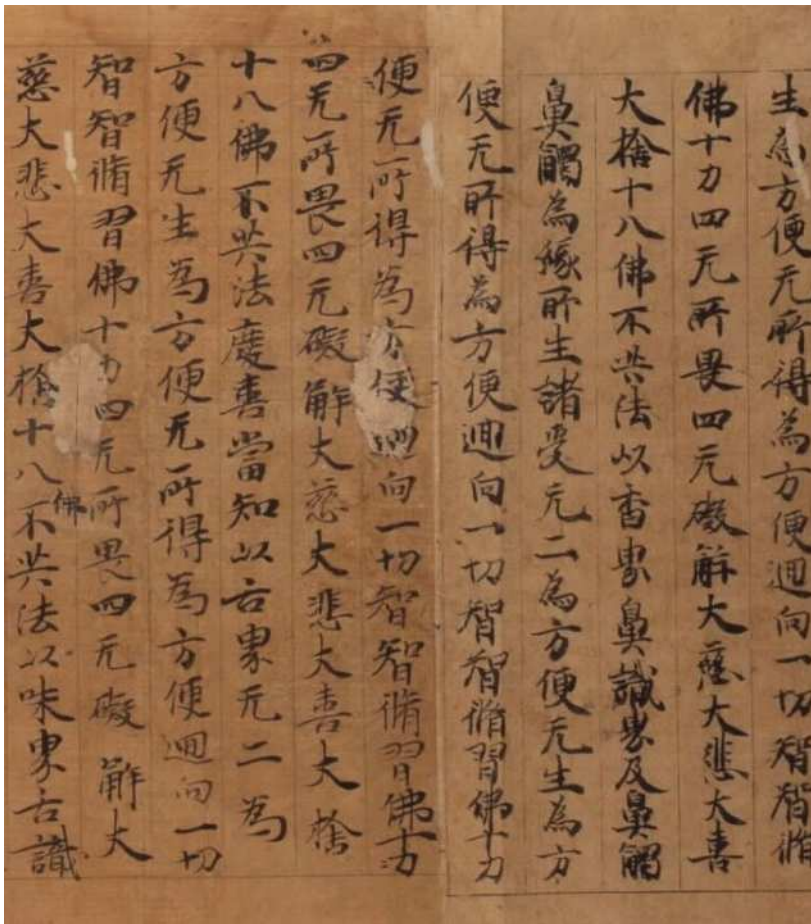 生為方便无所得為方便迴向一切智智脩習
佛十力四无所畏四无礙解大慈大悲大喜
大捨十八佛不共法以香界鼻識界及鼻觸
鼻觸為緣所生諸受无二為方便无生為方
便无所得為方便迴向一切智智脩習佛十力
便无所得為方便迴向一切智智脩習佛十力
四无所畏四无礙解大慈大悲大喜大捨
十八佛不共法慶喜當知以舌界无二為
方便无生為方便无所得為方便迴向一切
智智脩習佛十力四无所畏四无礙解大
慈大悲大喜大捨十八佛不共法以味界舌識